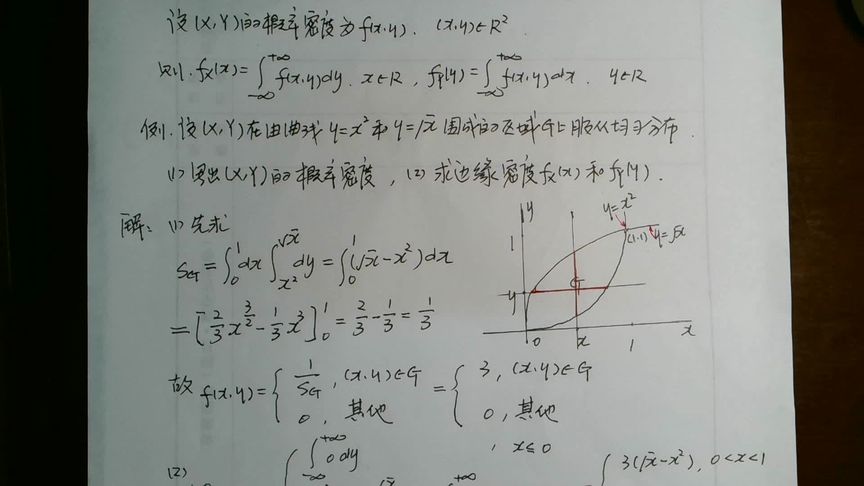 设(X,Y)的概率密度为f(x,y). (x,y)∈R²
则. fX(x)=∫_{-∞}^{+∞} f(x,y)dy. x∈R, fY(y)=∫_{-∞}^{+∞} f(x,y)dx. y∈R
例. 设(X,Y)在由曲线 y=x² 和 y=√x 围成的区域G上服从均匀分布.
(1) 写出(X,Y)的概率密度, (2) 求边缘密度fX(x)和fY(y).
解: (1) 先求
S_G=∫_0^1 dx∫_{x²}^{√x} dy=∫_0^1(√x-x²)dx
=[2/3 x^{3/2}-1/3 x³]_0^1=2/3-1/3=1/3
y
y=x²
1
(1,1)
y=√x
G
y
0
x
1
x
故 f(x,y)={ 1/S_G, (x,y)∈G ={ 3, (x,y)∈G
0, 其他 0, 其他
(2) ∫_{-∞}^{+∞} 0dy , x≤0 3(√x-x²), 0<x<1